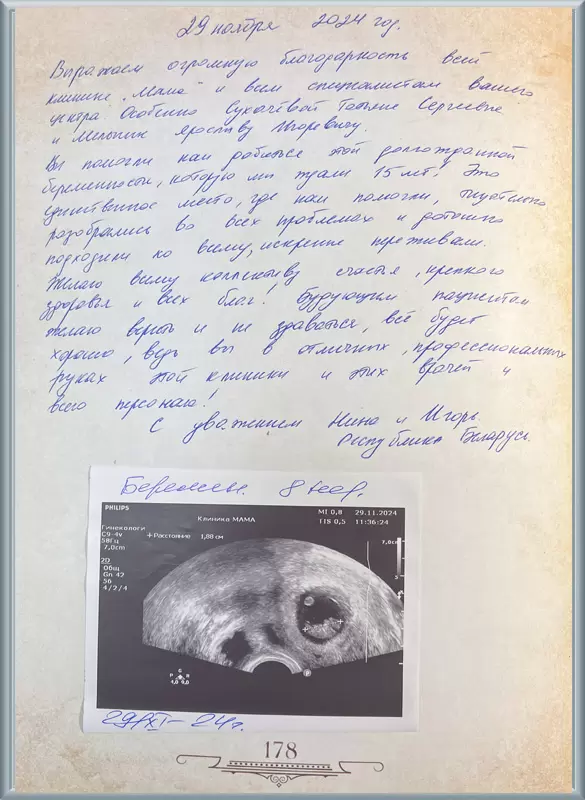 29 ноября 2024 год.
Выражаем огромную благодарность всей
клинике „Мама" и всем специалистам вашего
центра Особенно Сухачёвой Татьяне Сергеевне
и Мельник Ярославу Игоревичу.
Вы помогли нам добиться этой долгожданной
беременности, которую мы ждали 15 лет! Это
единственное место, где нам помогли, тщательно
разобрались во всех проблемах и дотошно
подходили ко всему, искренне переживали.
Желаю всему коллективу счастья, крепкого
здоровья и всех благ! Будующим пациентам
желаю верить и не здаваться, всё будет
хорошо, ведь вы в отличных, профессиональных
руках этой клиники и этих врачей и
всего персонала!
С уважением Нина и Игорь.
Республика Беларусь.
Беременн. 8 нед.
PHILIPS
Клиника МАМА
MI 0,8 29.11.2024
TIS 0,5 11:36:24
Гинекологи
C9-4v
58Гц
7,0cm
+Расстояние 1,88 см
7,0см
2D
Общ
Gn 42
56
4/2/4
5
P
29/XI-24г.
178